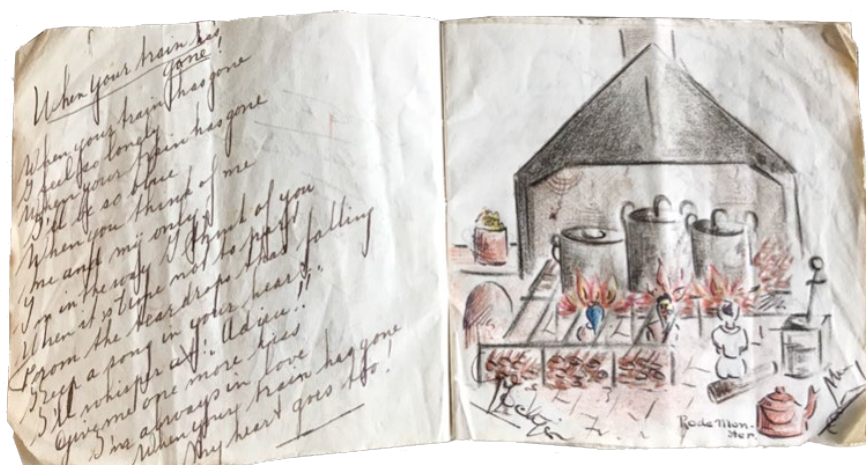 When your train has
gone!
When your train has gone
I feel so lonely
When your train has gone
I'll be so blue
When you think of me
me and my only
on in the way I think of you
When it is time not to part
From the teardrops that falling
Keep a song in your heart
I'll whisper out: Adieu!!
Give me one more kiss
I'm always in love
When your train has gone
My heart goes too!
Rode Mon-
ster.